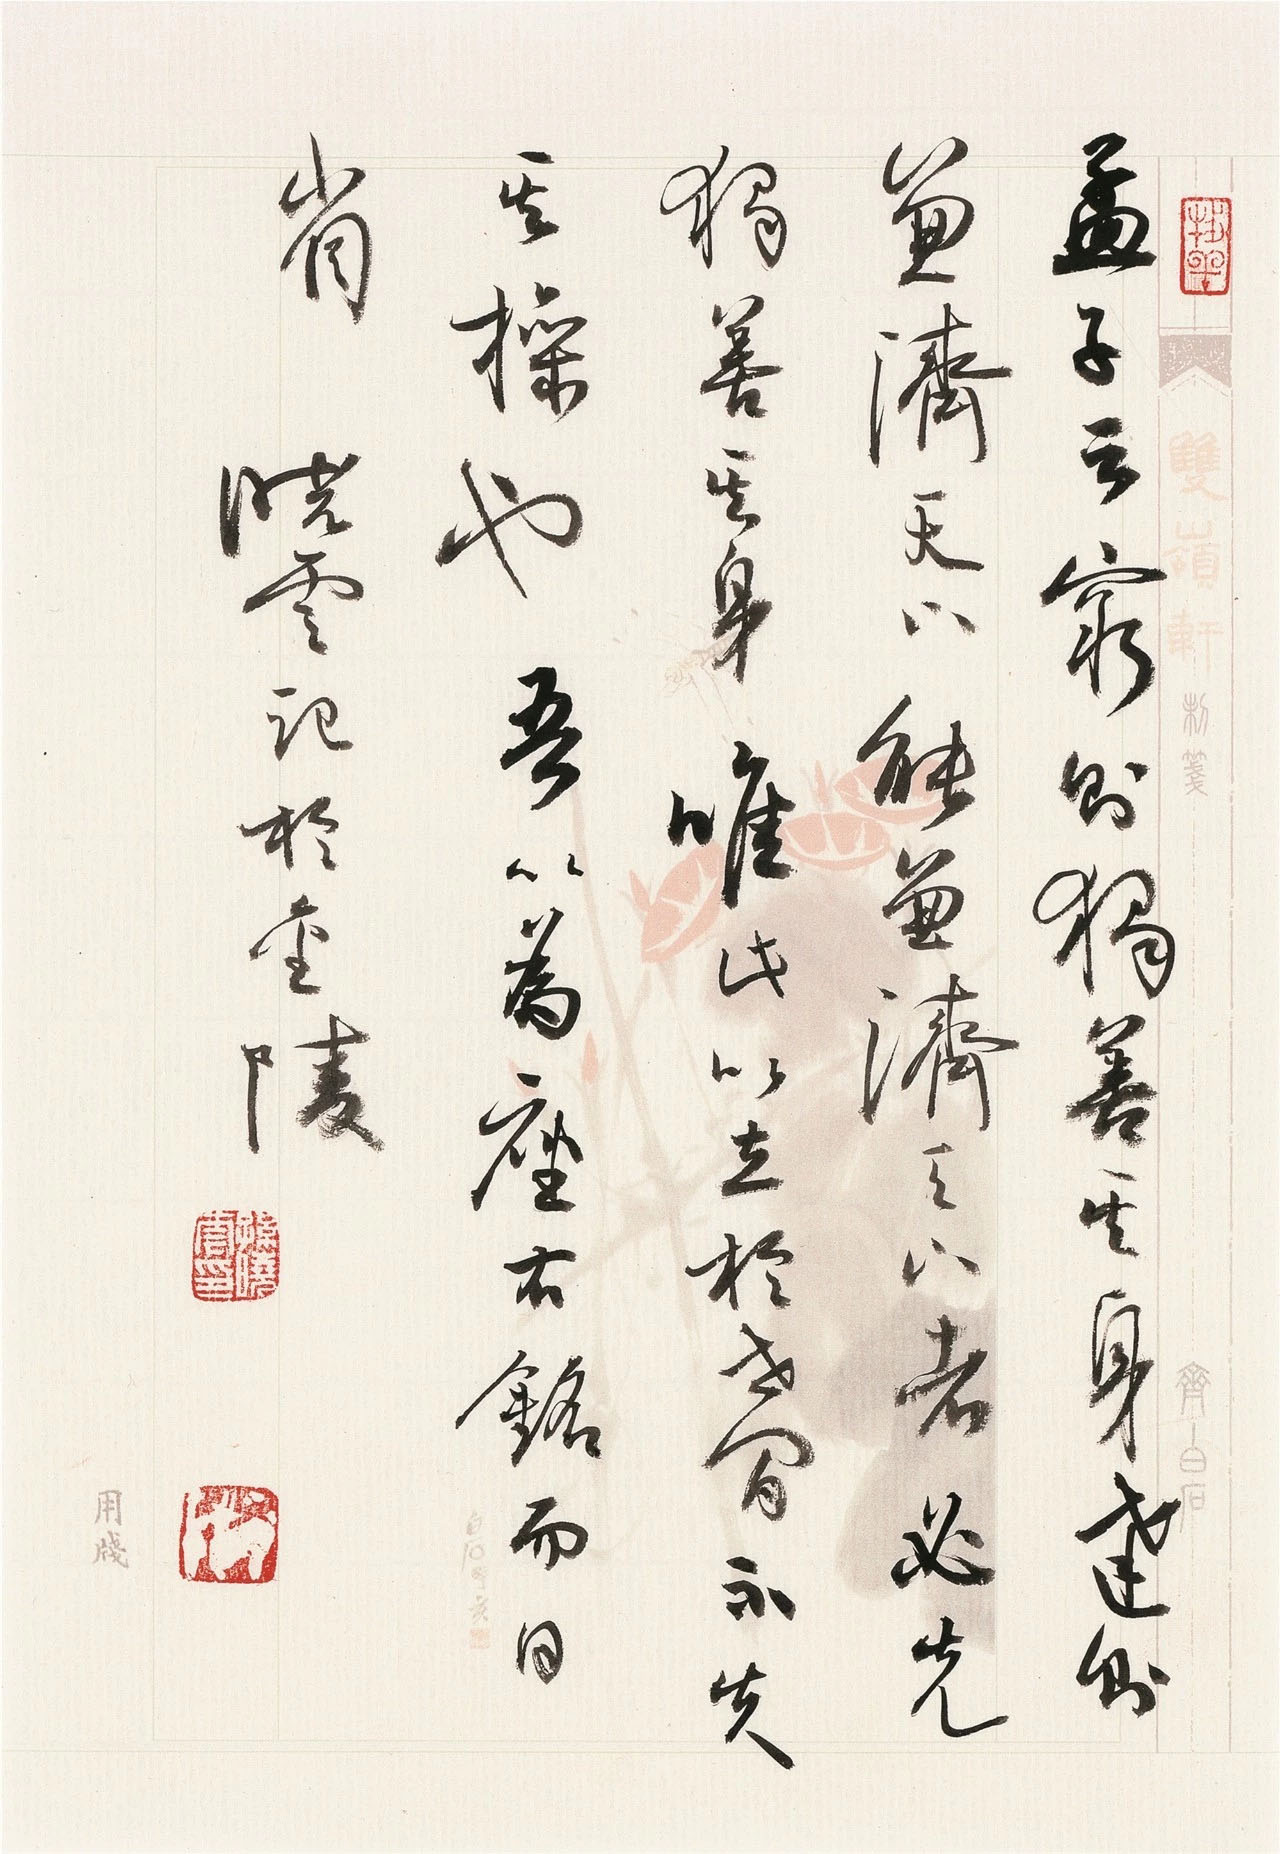 孟子云窮則獨善其身達則
兼濟天下能兼濟天下者必先
獨善其身唯此以立於世間不失
其操也吾以為座右銘而日
省
曉雲記於金陵
孫曉雲印
雙嶺軒制箋
齊白石
用牋